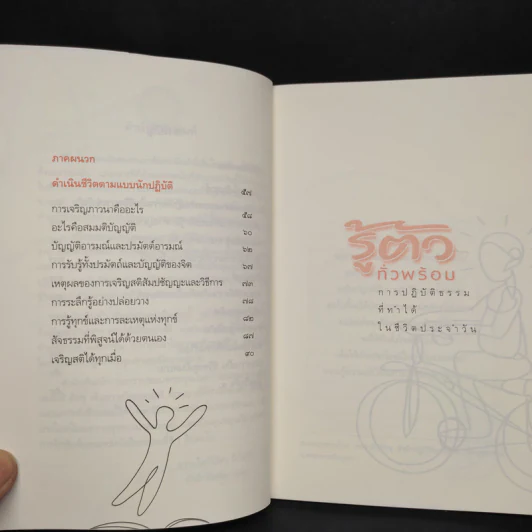 ภาคผนวก
ดำเนินชีวิตตามแบบนักปฏิบัติ ๕๗
การเจริญภาวนาคืออะไร ๕๘
อะไรคือสมมติบัญญัติ ๖๐
บัญญัติอารมณ์และปรมัตถ์อารมณ์ ๖๒
การรับรู้ทั้งปรมัตถ์และบัญญัติของจิต ๖๗
เหตุผลของการเจริญสติสัมปชัญญะและวิธีการ ๗๓
การระลึกรู้อย่างปล่อยวาง ๗๘
การรู้ทุกข์และการละเหตุแห่งทุกข์ ๘๒
สัจธรรมที่พิสูจน์ได้ด้วยตนเอง ๘๗
เจริญสติได้ทุกเมื่อ ๙๐
รู้ตัว
ทั่วพร้อม
การปฏิบัติธรรม
ที่ทำได้
ในชีวิตประจำวัน